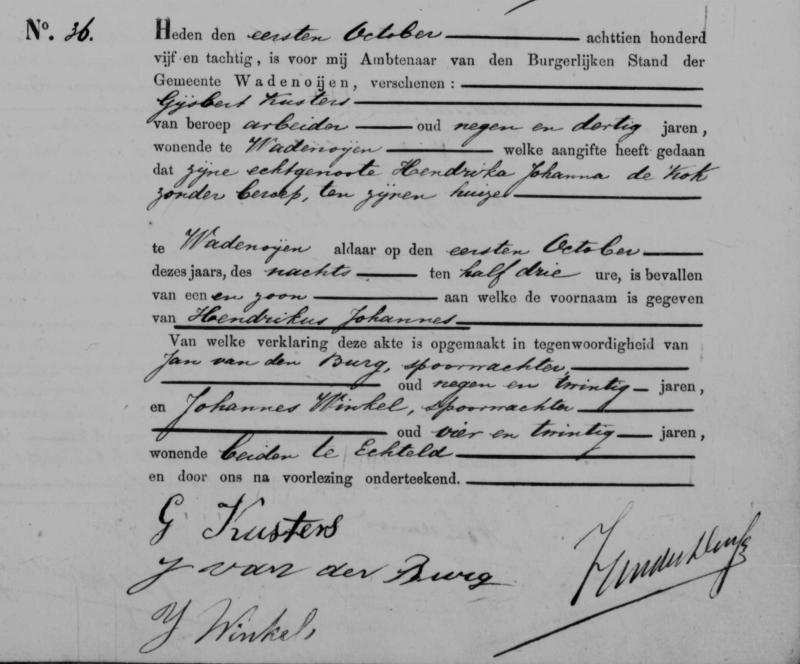 No. 36. Heden den eersten October achttien honderd
vijf en tachtig, is voor mij Ambtenaar van den Burgerlijken Stand der
Gemeente Wadenoijen, verschenen:
Gijsbert Kusters
van beroep arbeider oud negen en dertig jaren,
wonende te Wadenoijen welke aangifte heeft gedaan
dat zijne echtgenoote Hendrika Johanna de Kok
zonder beroep, ten zijnen huize
te Wadenoijen aldaar op den eersten October
dezes jaars, des nachts ten half drie ure, is bevallen
van een en zoon aan welke de voornaam is gegeven
van Hendrikus Johannes
Van welke verklaring deze akte is opgemaakt in tegenwoordigheid van
Jan van den Burg, spoorwachter,
oud negen en twintig jaren,
en Johannes Winkel, spoorwachter
oud vier en twintig jaren,
wonende beiden te Echteld
en door ons na voorlezing onderteekend.
G Kusters
J van der Burg
J Winkel